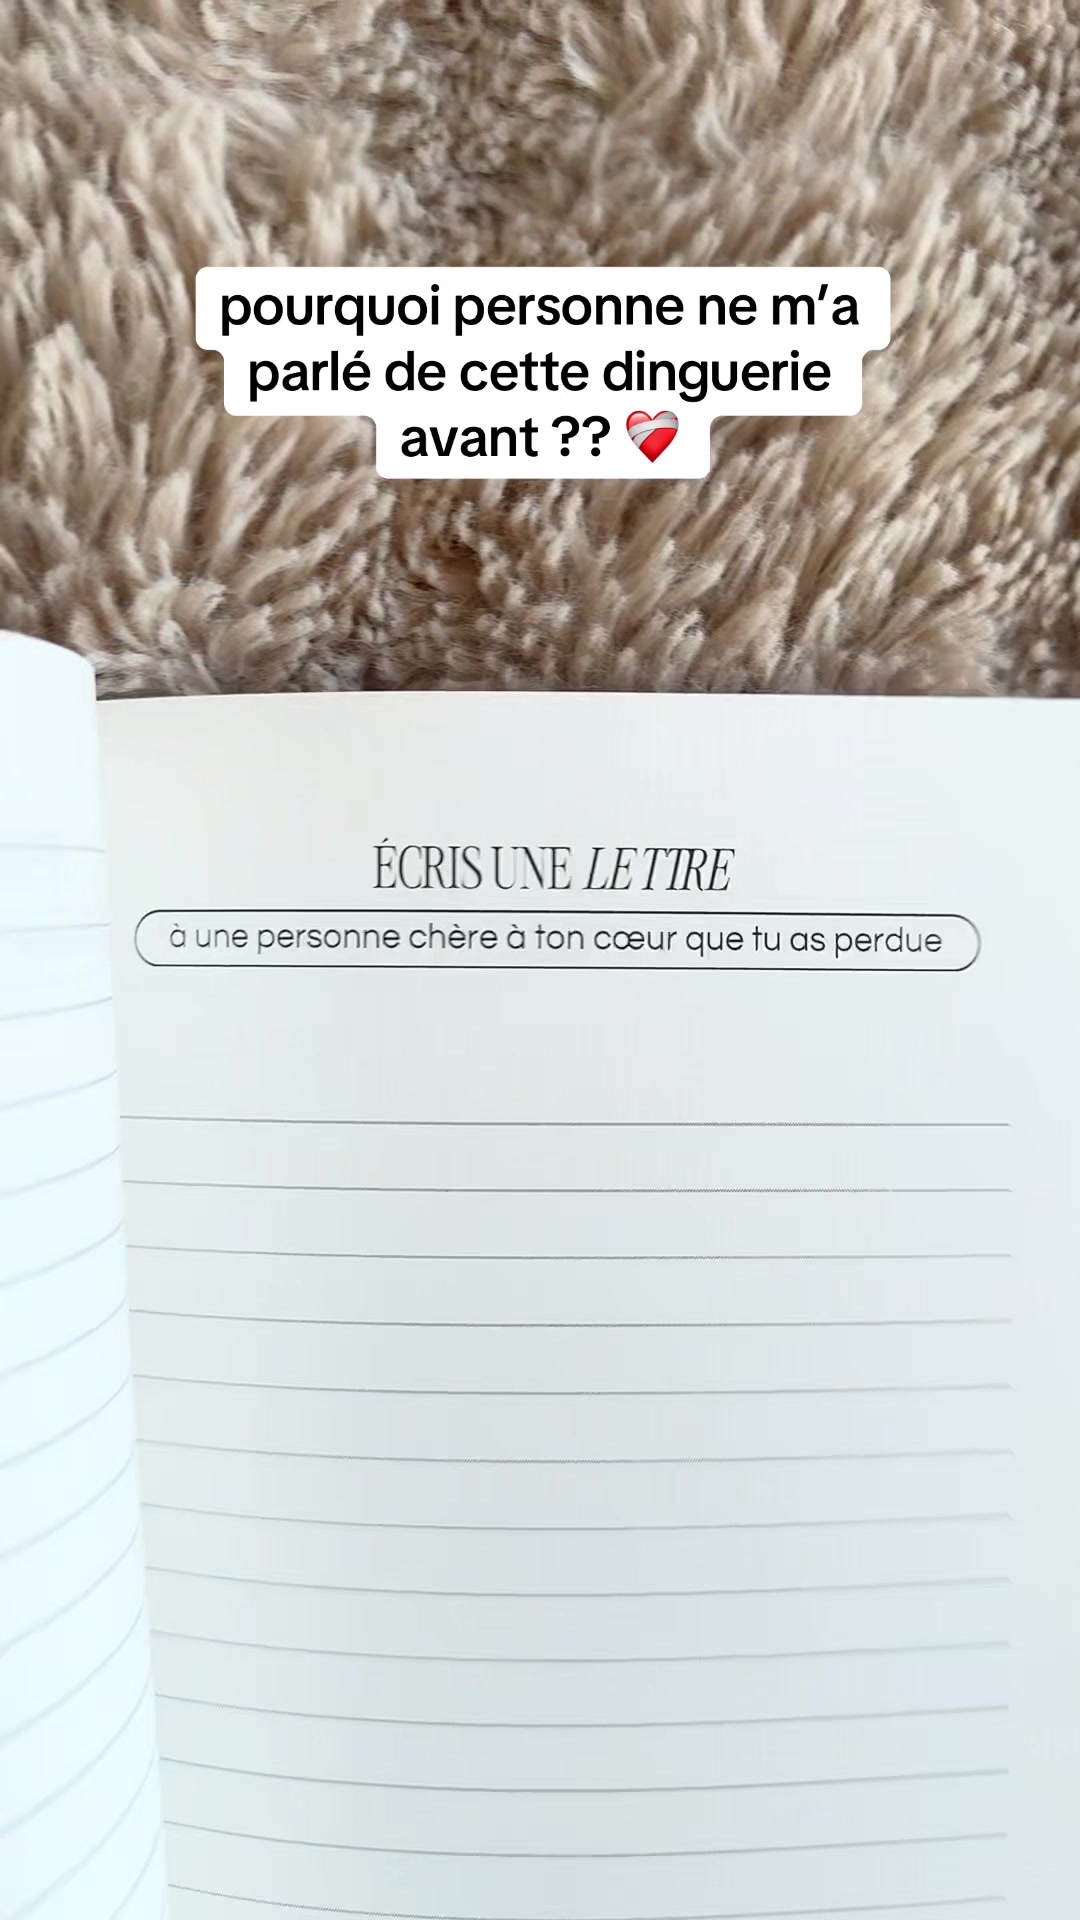 pourquoi personne ne m’a
parlé de cette dinguerie
avant ?? ❤️‍🩹
ÉCRIS UNE LETTRE
à une personne chère à ton cœur que tu as perdue